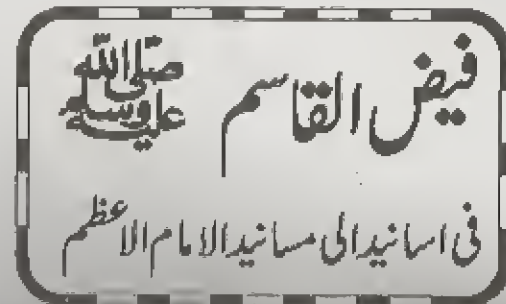 فیض القاسم صلی اللہ علیہ وسلم
فی اسانید الی مسانید الامام الاعظم